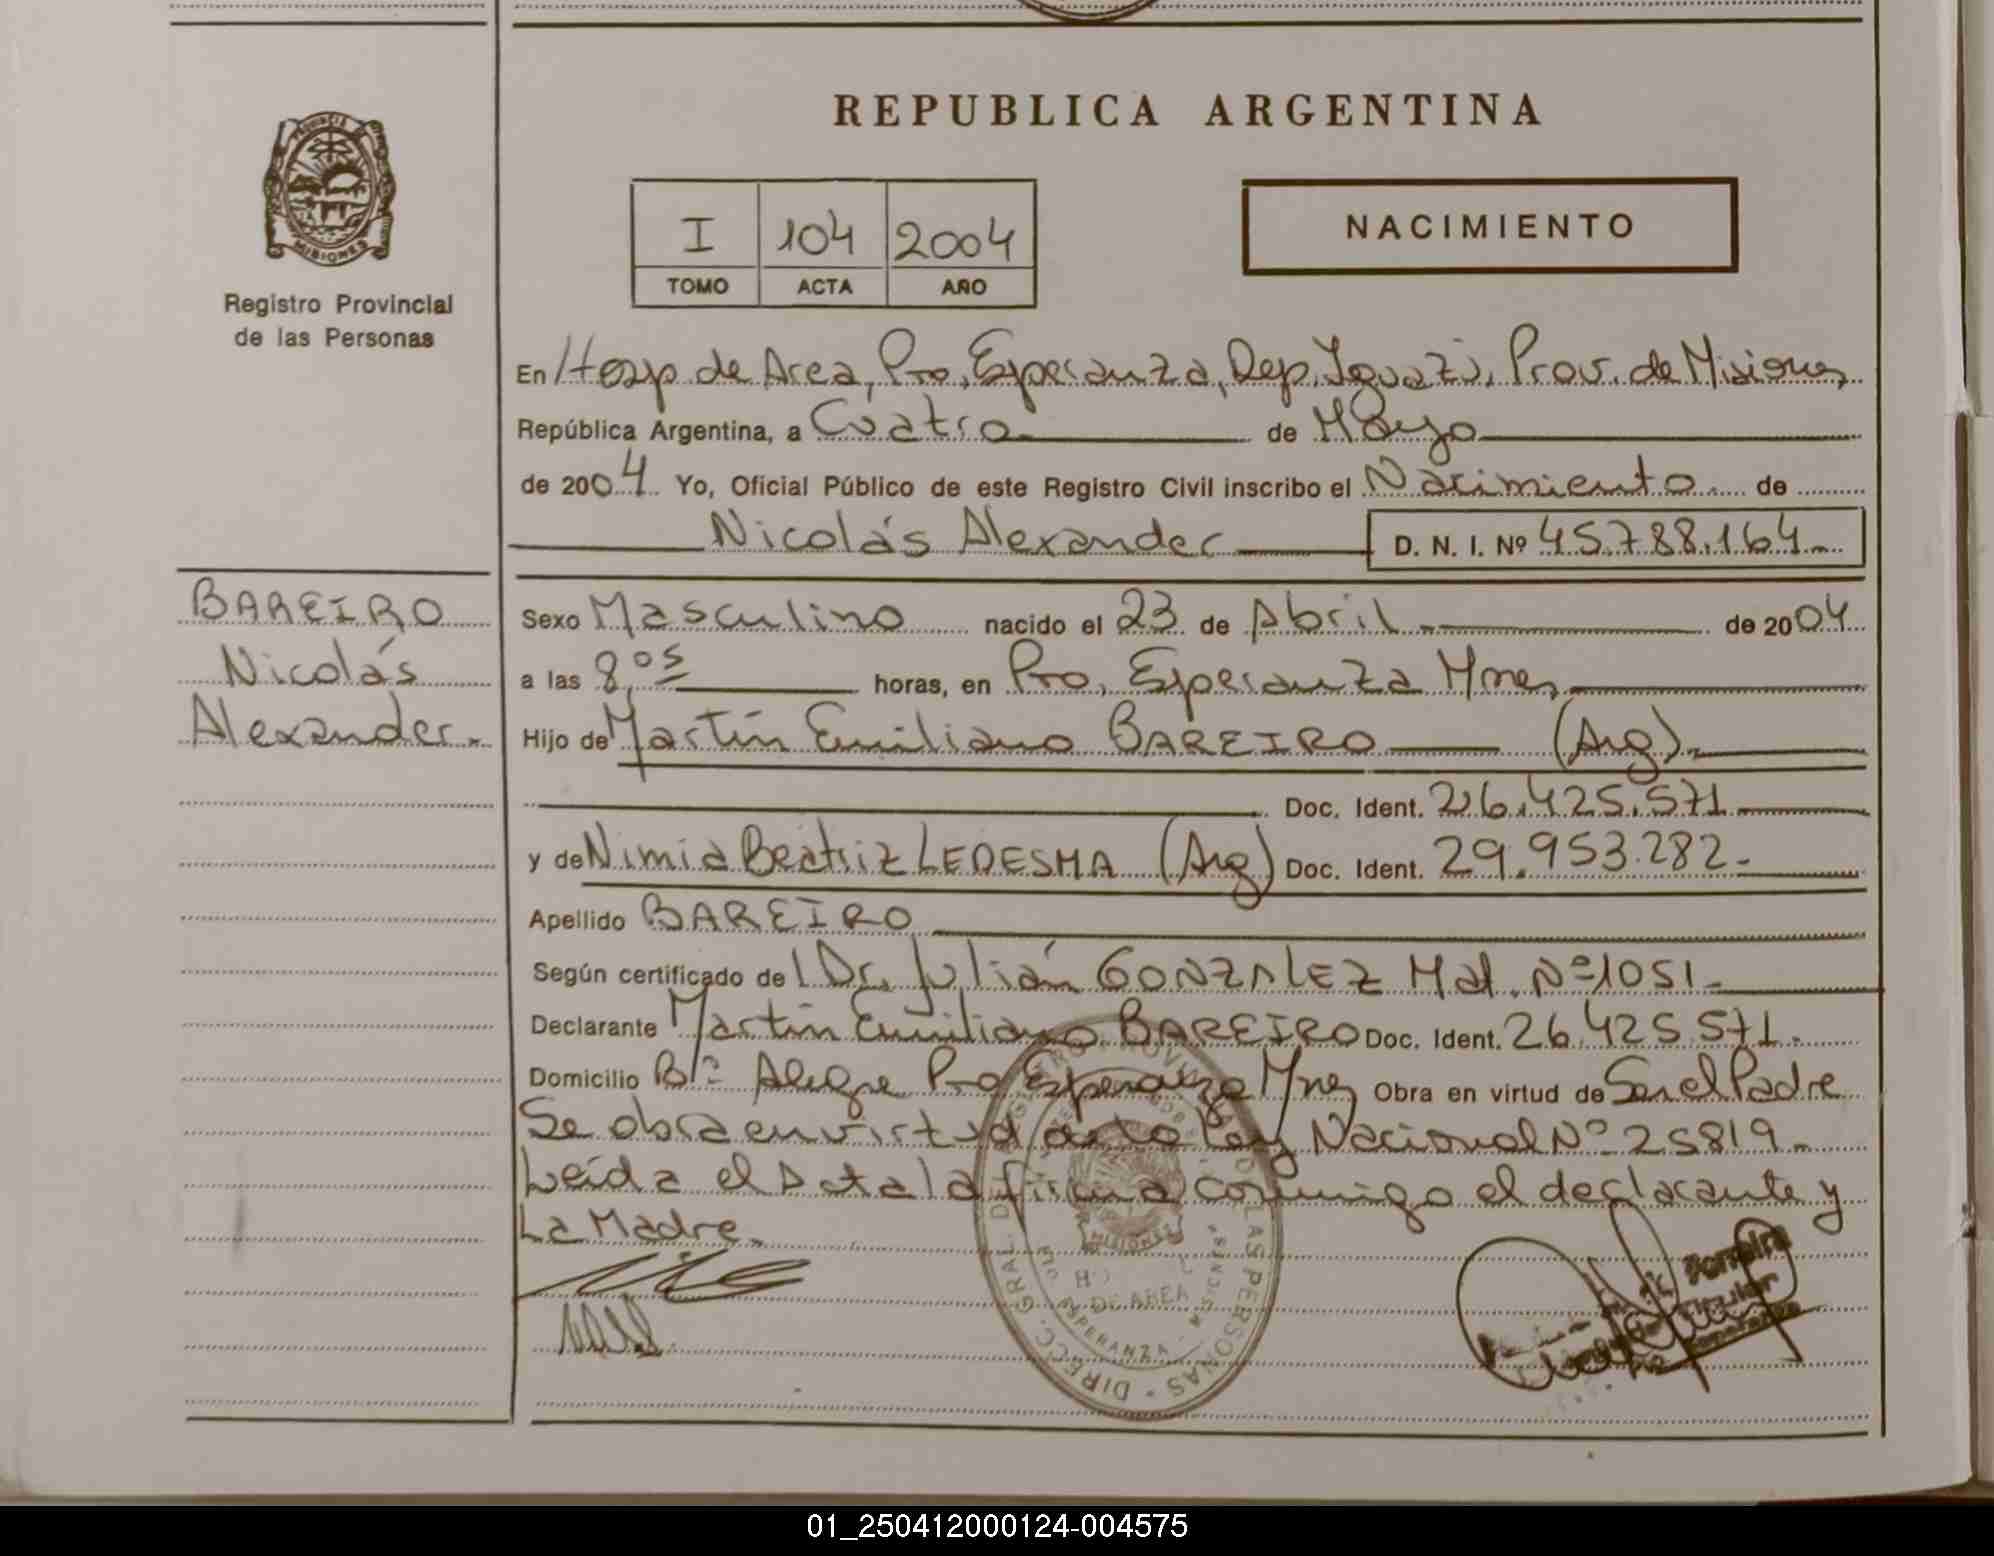 REPUBLICA ARGENTINA
PROVINCIA DE
MISIONES
Registro Provincial
de las Personas
I 104 2004
TOMO ACTA AÑO
NACIMIENTO
En Hosp. de Area, Pto. Esperanza, Dep. Iguazú, Prov. de Misiones
República Argentina, a Cuatro de Mayo
de 2004 Yo, Oficial Público de este Registro Civil inscribo el Nacimiento de
Nicolás Alexander D. N. I. Nº 45.788.164
BAREIRO
Nicolás
Alexander.
Sexo Masculino nacido el 23 de Abril de 2004
a las 8,05 horas, en Pto. Esperanza Mnes,
Hijo de Martín Emiliano BAREIRO (Arg).
Doc. Ident. 26.425.571
y de Nimia Beatriz LEDESMA (Arg) Doc. Ident. 29.953.282
Apellido BAREIRO
Según certificado de l Dr. Julián GONZALEZ Mat. Nº 1051
Declarante Martín Emiliano BAREIRO Doc. Ident. 26.425.571.
Domicilio Bº Alegre Pto Esperanza Mnes Obra en virtud de Ser el Padre
Se obra en virtud a la Ley Nacional Nº 25819
Leída el Acta la firma conmigo el declarante y
La Madre.
DIRECC. GRAL. DE REGISTRO PROVINCIAL DE LAS PERSONAS
MISIONES
DE AREA
ESPERANZA - MISIONES
Ferreira
Titular
01_250412000124-004575